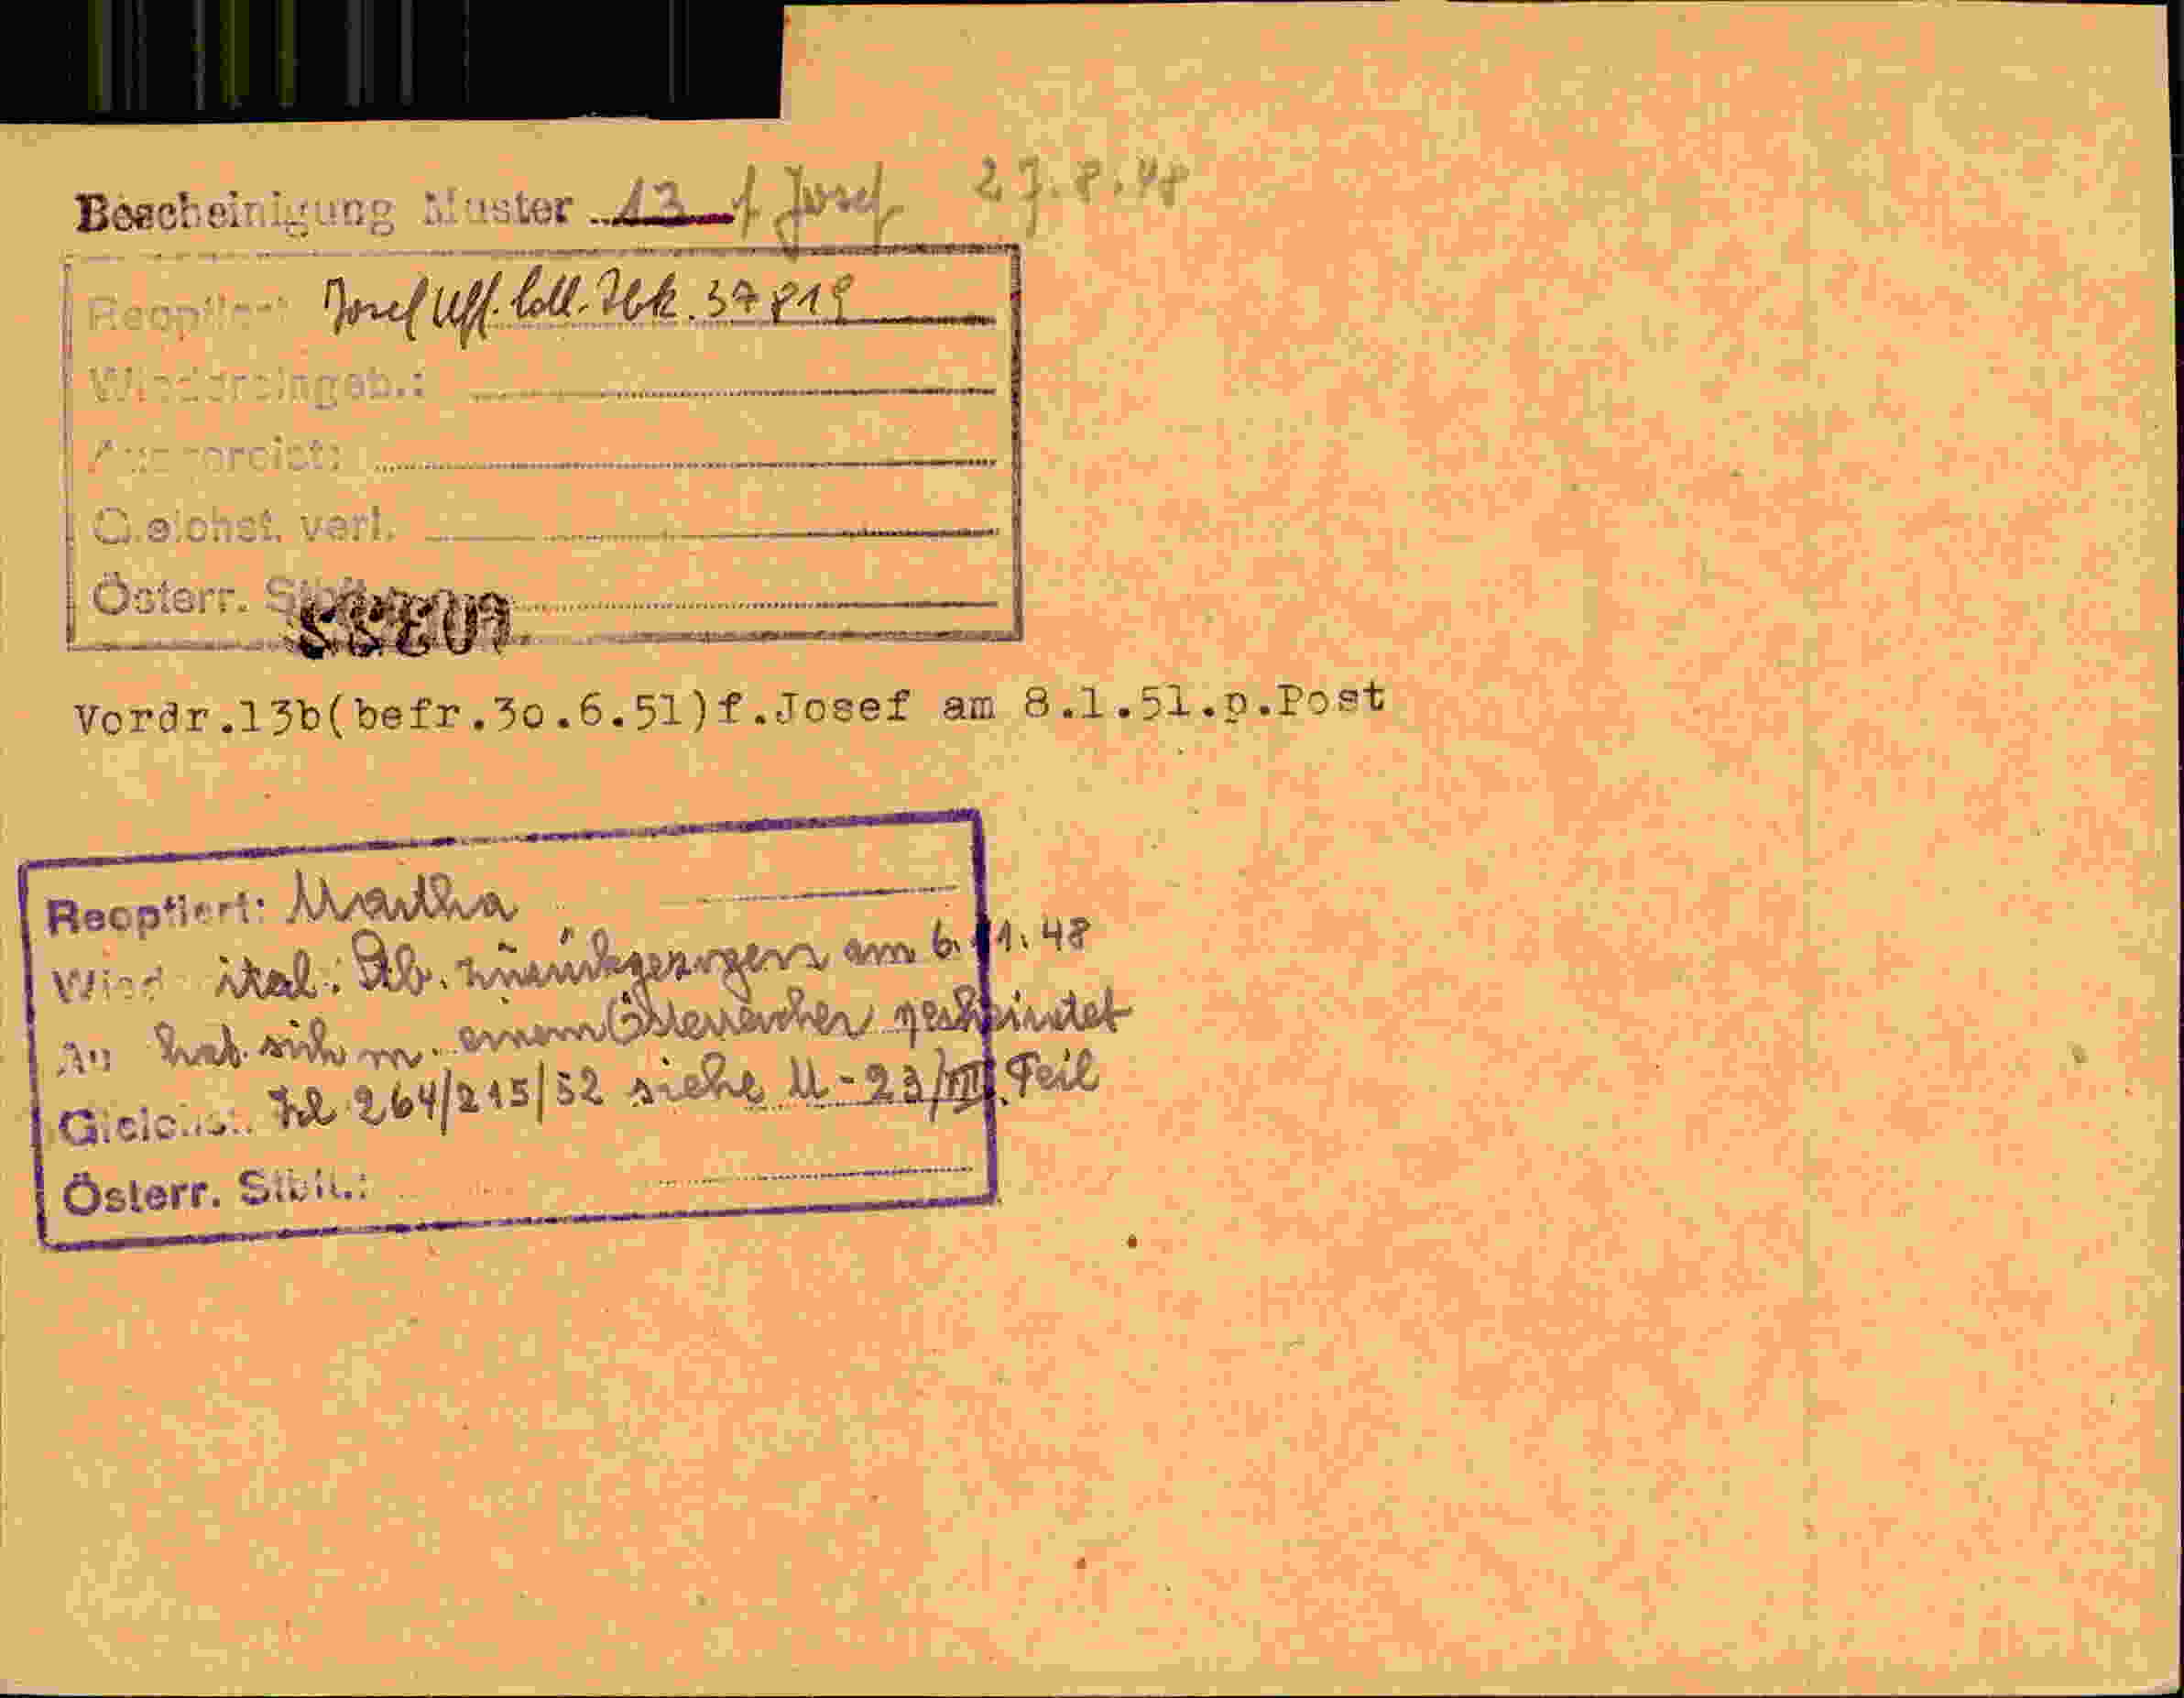 Bescheinigung Muster 13 f Josef 27.8.48
Reoptiert Josef Uff. Coll. Ibk. 37819
Wiedereingeb.:
Ausgereist:
Gleichst. verl.
Österr.
Vordr.13b(befr.30.6.51)f.Josef am 8.1.51.p.Post
Reoptiert: Martha
Wied ital. Stb. zurückgezogen am 6.11.48
Au hat sich m. einem Österreicher verheiratet
Gleichst. Zl 264/215/52 siehe U-23/VIII. Teil
Österr. Stbft.: